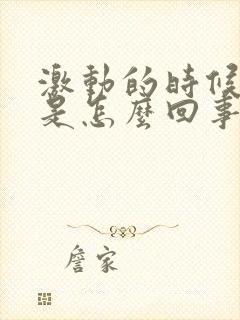 激動的時候
是怎麼回事
詹家